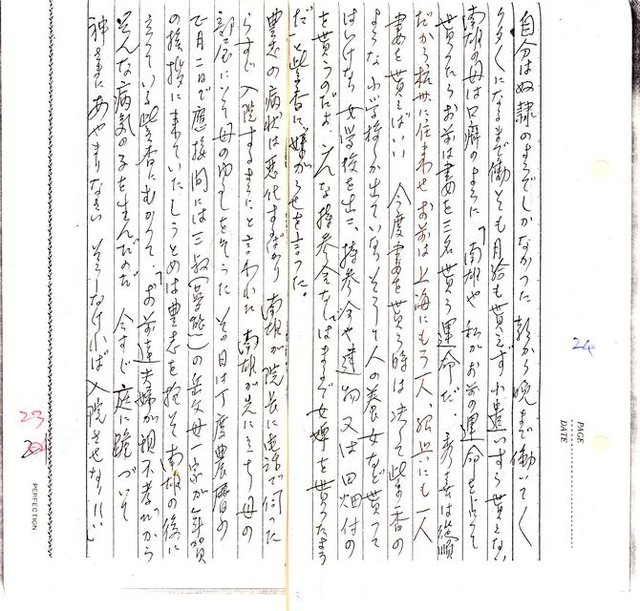 PAGE
DATE
24
自分は奴隷のようでしかなかった 朝から晩まで働いてく
たくたになるまで働いても月給も貰えず小遣いすら貰えない
南雄の母は口癖のように「南雄や 私がお前の運命を占って
貰ったらお前は妻を三名貰う運命だ。 は従順
だから に住まわせお前は上海にもう一人 にも一人
妻を貰えばいい 今度妻を貰う時は決して 香の
ような小学校しか出ていない そして人の養女など貰って
はいけない 女学校を出て、持参金や建物又は田畑付の
を貰うのだよ。そんな持参金なしはまるで女婢を貰ったよう
だ」と 香に嫌がらせを言った。
豊志の病状は悪化するばかり 南雄が院長に電話で伺った
らすぐ入院するようにと言われた 南雄が先に立ち母の
部屋にいそぎ母の ししをそうた その日は丁度農暦の
二日で應接間には三叔( )の岳父母一家が年賀
の挨拶に来ていた しうとめは豊志を抱いて南雄の後に
立っている 香にむかって、「お前達夫婦が親不孝だから
そんな病気の子を生んだのだ 今すぐ庭に跪づいて
神さまにあやまりなさい そうしなければ入院させない!!」
23
PERFECTION